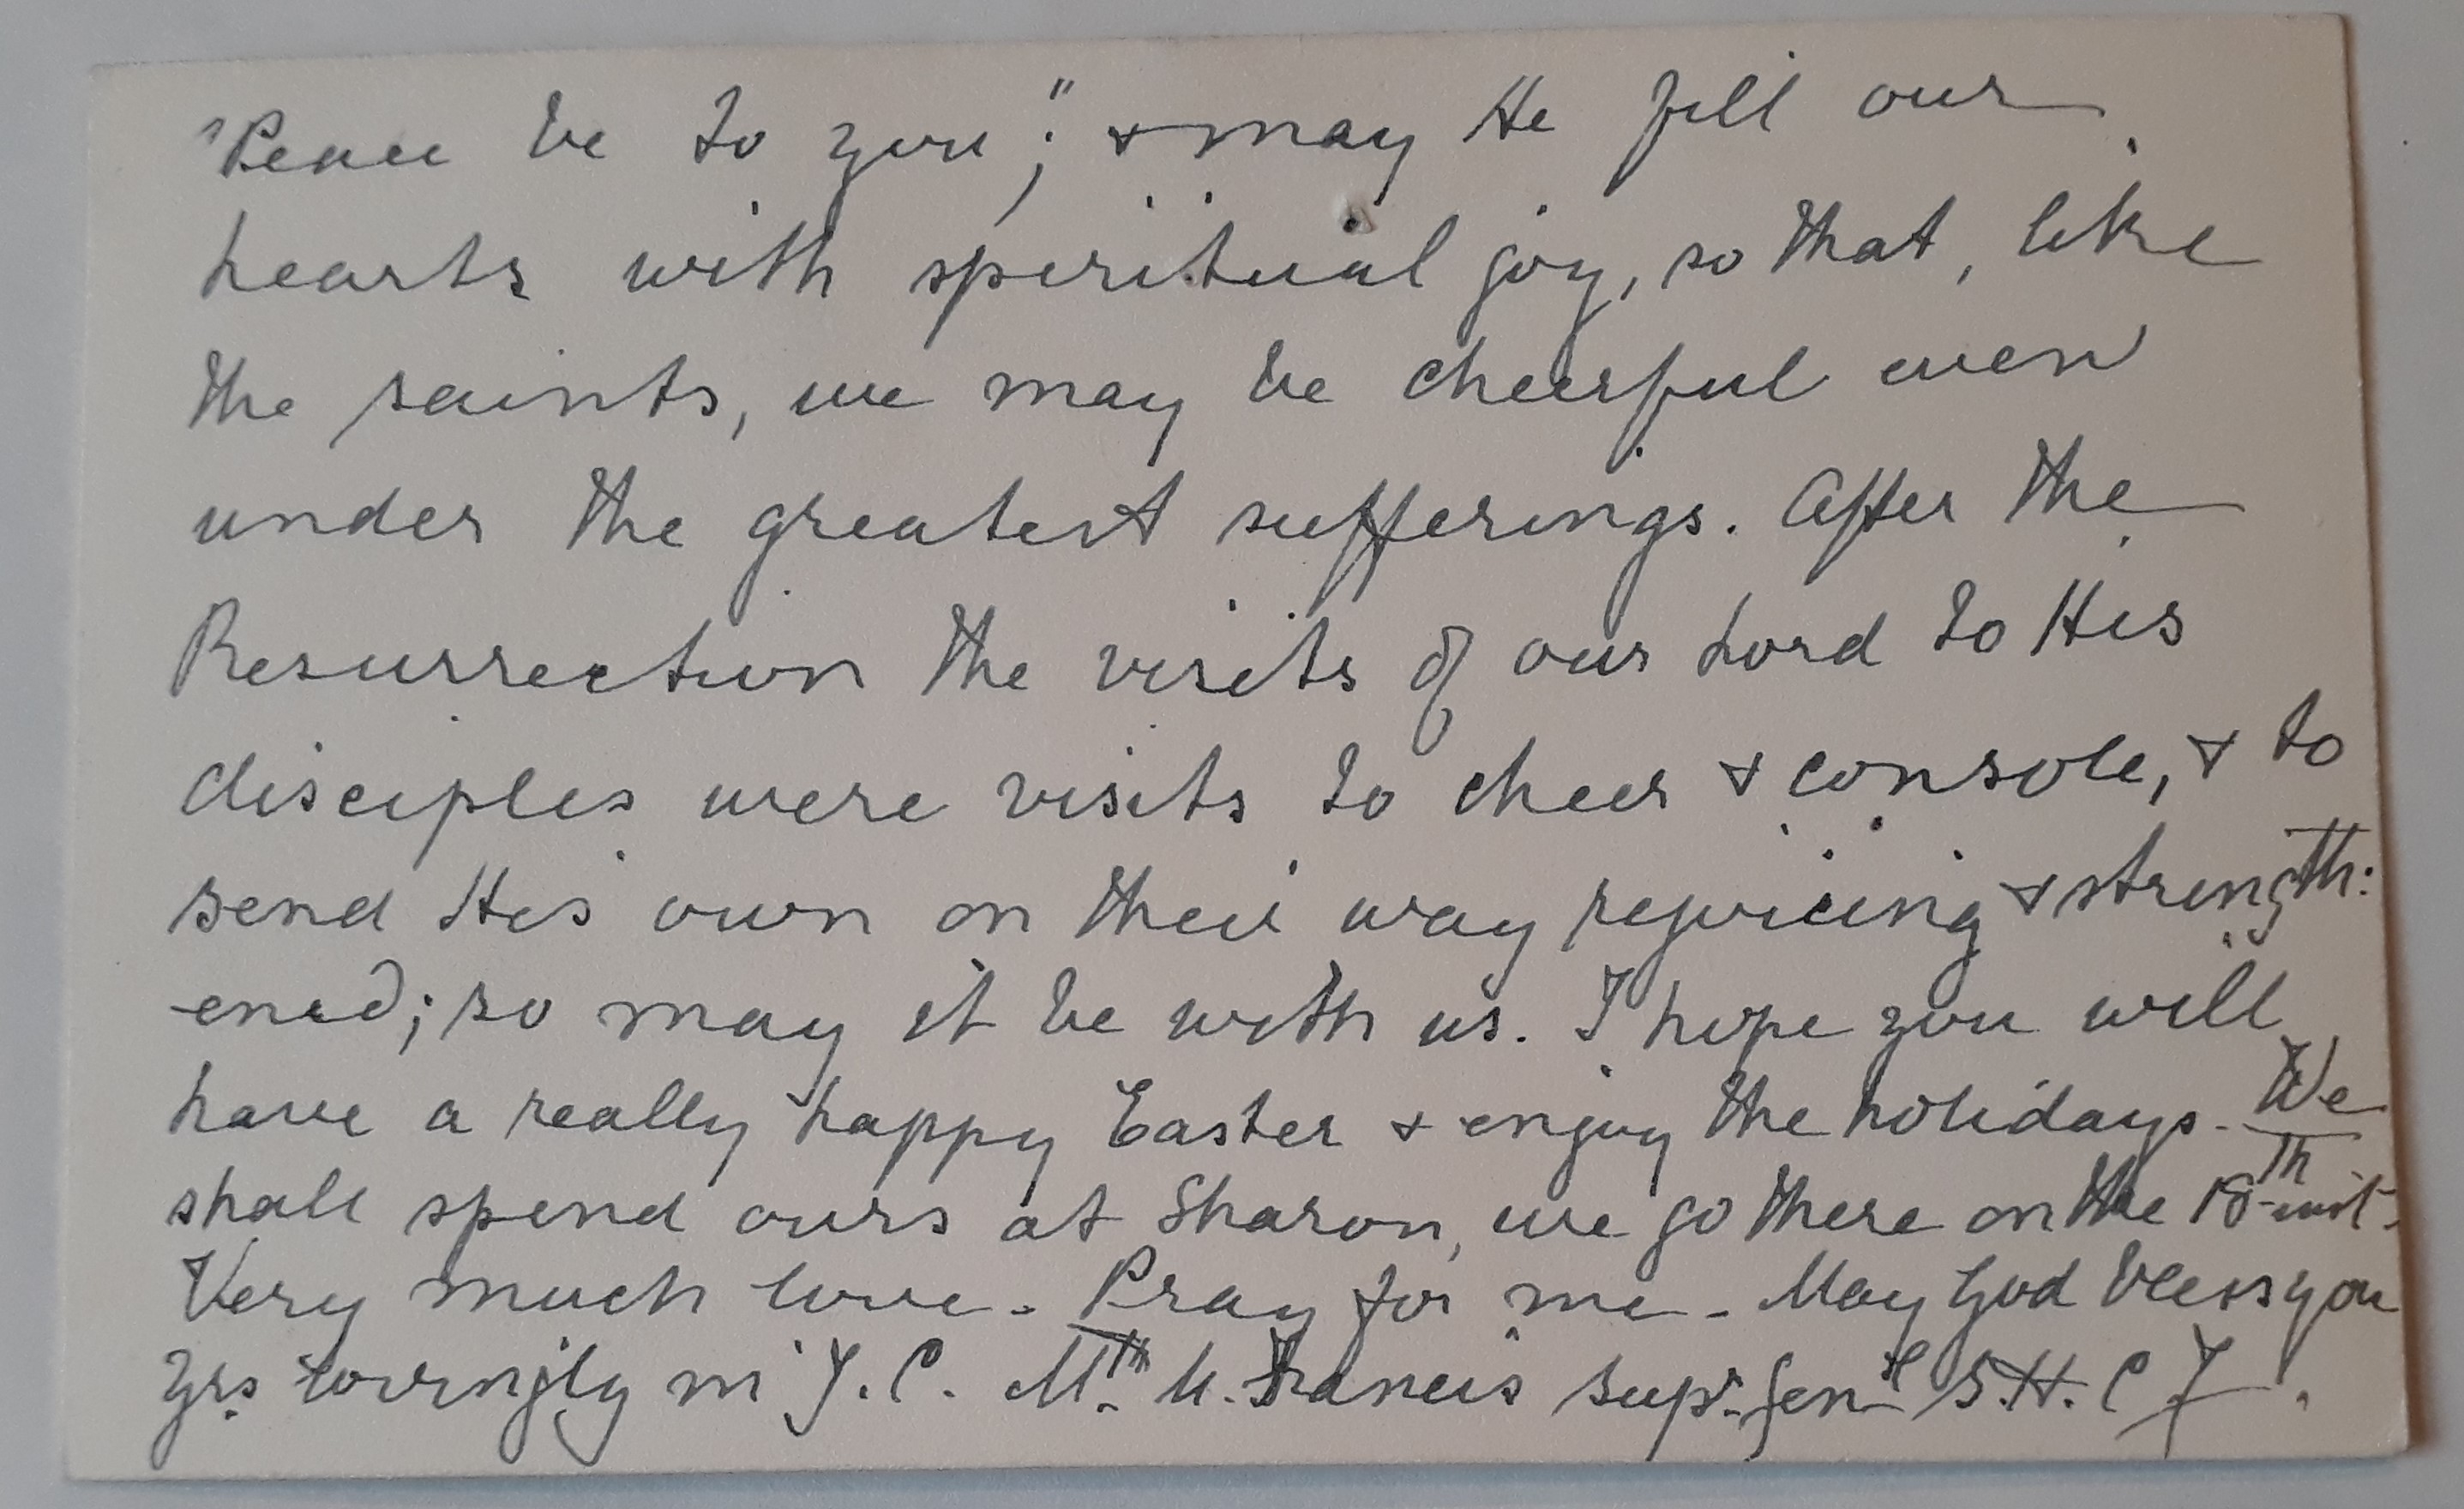 "Peace be to you"; & may He fill our
hearts with spiritual joy, so that, like
the saints, we may be cheerful even
under the greatest sufferings. After the
Resurrection the visits of our Lord to His
disciples were visits to cheer & console, & to
send His own on their way rejoicing & strength:
ened; so may it be with us. I hope you will
have a really happy Easter & enjoy the holidays. We
shall spend ours at Sharon, we go there on the 18th inst.
Very much love - Pray for me - May God bless you
Yrs lovingly in J. C. Mth M. Francis Supr. Genl S.H.C J.